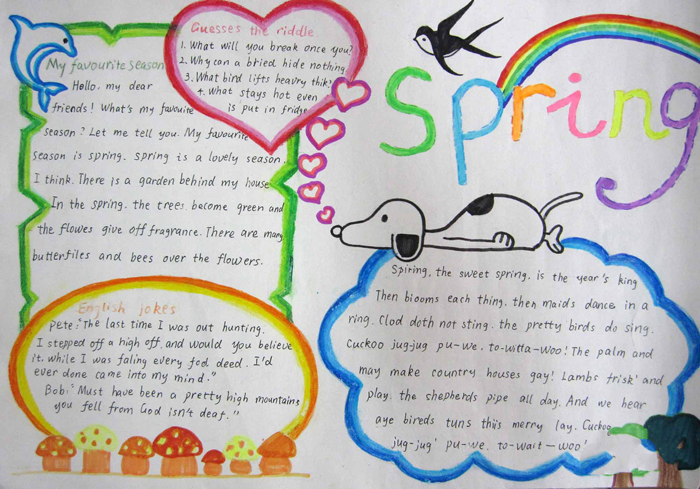 Guesses the riddle
1. What will you break once you?
2. Why can a bried hide nothing.
3. What bird lifts heavry thik?
4. What stays hot even
is put in fridge
Spring
My favourite season
Hello, my dear
friends! What's my favorite
season? Let me tell you. My favourite
season is spring. Spring is a lovely season.
I think. There is a garden behind my house
In the spring. the trees become green and
the flowes give off fragrance. There are many
butterflies and bees over the flowers.
English jokes
Pete: "The last time I was out hunting.
I stepped off a high off, and would you believe
it. while I was faling every fod deed. I'd
ever done came into my mind."
Bob: "Must have been a pretty high mountains
you fell from God isn't deaf."
Spiring, the sweet spring, is the year's king
Then biooms each thing, then maids dance in a
ring. Clod doth not sting. the pretty birds do sing.
Cuckoo jug-jug pu-we, to-witta-woo! The palm and
may make country houses gay! Lambs frisk' and
play. the shepherds pipe all day. And we hear
aye bireds tuns this merry lay. Cuckoo
jug-jug' pu-we. to-wait-woo'